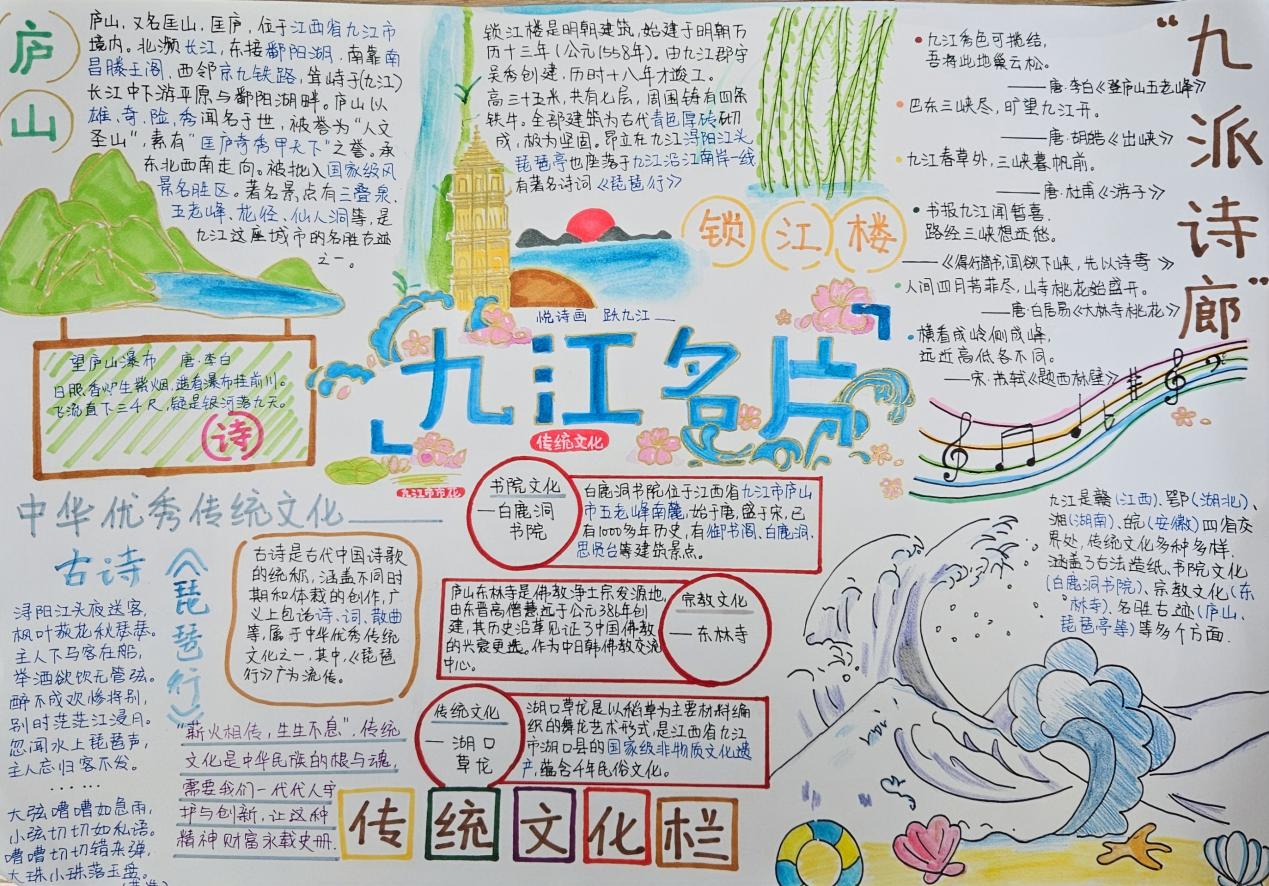 庐山
庐山，又名匡山，匡庐，位于江西省九江市
境内。北濒长江，东接鄱阳湖，南靠南
昌滕王阁，西邻京九铁路，耸峙于(九江)
长江中下游平原与鄱阳湖畔。庐山以
雄、奇、险、秀闻名于世，被誉为“人文
圣山”，素有“匡庐奇秀甲天下”之誉。
东北西南走向。被批入国家级风
景名胜区。著名景点有三叠泉、
五老峰、龙径、仙人洞等，是
九江这座城市的名胜古迹
之一。
锁江楼是明朝建筑，始建于明朝万
历十三年(公元1558年)。由九江郡守
吴秀创建，历时十八年才竣工。
高三十五米，共有七层，周围铸有四条
铁牛。全部建筑为古代青色厚砖砌
成，极为坚固。昂立在九江浔阳江头，
琵琶亭也座落于九江沿江南岸一线
有著名诗词《琵琶行》
锁江楼
“九派诗廊”
九江秀色可揽结，
吾将此地巢云松。
——唐·李白《登庐山五老峰》
巴东三峡尽，旷望九江开。
——唐·胡皓《出峡》
九江春草外，三峡暮帆前。
——唐·杜甫《游子》
书报九江闻暂喜，
路经三峡想还愁。
人间四月芳菲尽，山寺桃花始盛开。
——唐·白居易《大林寺桃花》
横看成岭侧成峰，
远近高低各不同。
——宋·苏轼《题西林壁》
悦诗画 跃九江
九江名片
传统文化
九江市市花
望庐山瀑布 唐·李白
日照香炉生紫烟，遥看瀑布挂前川。
飞流直下三千尺，疑是银河落九天。
诗
中华优秀传统文化
古诗
《琵琶行》
浔阳江头夜送客，
枫叶荻花秋瑟瑟。
主人下马客在船，
举酒欲饮无管弦。
醉不成欢惨将别，
别时茫茫江浸月。
忽闻水上琵琶声，
主人忘归客不发。
……
大弦嘈嘈如急雨，
小弦切切如私语。
嘈嘈切切错杂弹，
大珠小珠落玉盘。
古诗是古代中国诗歌
的统称，涵盖不同时
期和体裁的创作，广
义上包括诗、词、散曲
等，属于中华优秀传统
文化之一，其中，《琵琶
行》广为流传。
“薪火相传，生生不息”，传统
文化是中华民族的根与魂，
需要我们一代代人守
护与创新，让这种
精神财富永载史册.
书院文化
—白鹿洞
书院
白鹿洞书院位于江西省九江市庐山
市五老峰南麓，始于唐，盛于宋，已
有1000多年历史，有御书阁、白鹿洞、
思贤台等建筑景点。
庐山东林寺是佛教净土宗发源地，
由东晋高僧慧远于公元386年创
建，其历史沿革见证了中国佛教
的兴衰更迭。作为中日韩佛教交流
中心。
宗教文化
—东林寺
传统文化
—湖口
草龙
湖口草龙是以稻草为主要材料编
织的舞龙艺术形式，是江西省九江
市湖口县的国家级非物质文化遗
产，蕴含千年民俗文化。
传统文化栏
九江是赣(江西)、鄂(湖北)、
湘(湖南)、皖(安徽)四省交
界处，传统文化多种多样.
涵盖了古法造纸、书院文化
(白鹿洞书院)、宗教文化(东
林寺)、名胜古迹(庐山、
琵琶亭等)等多个方面.